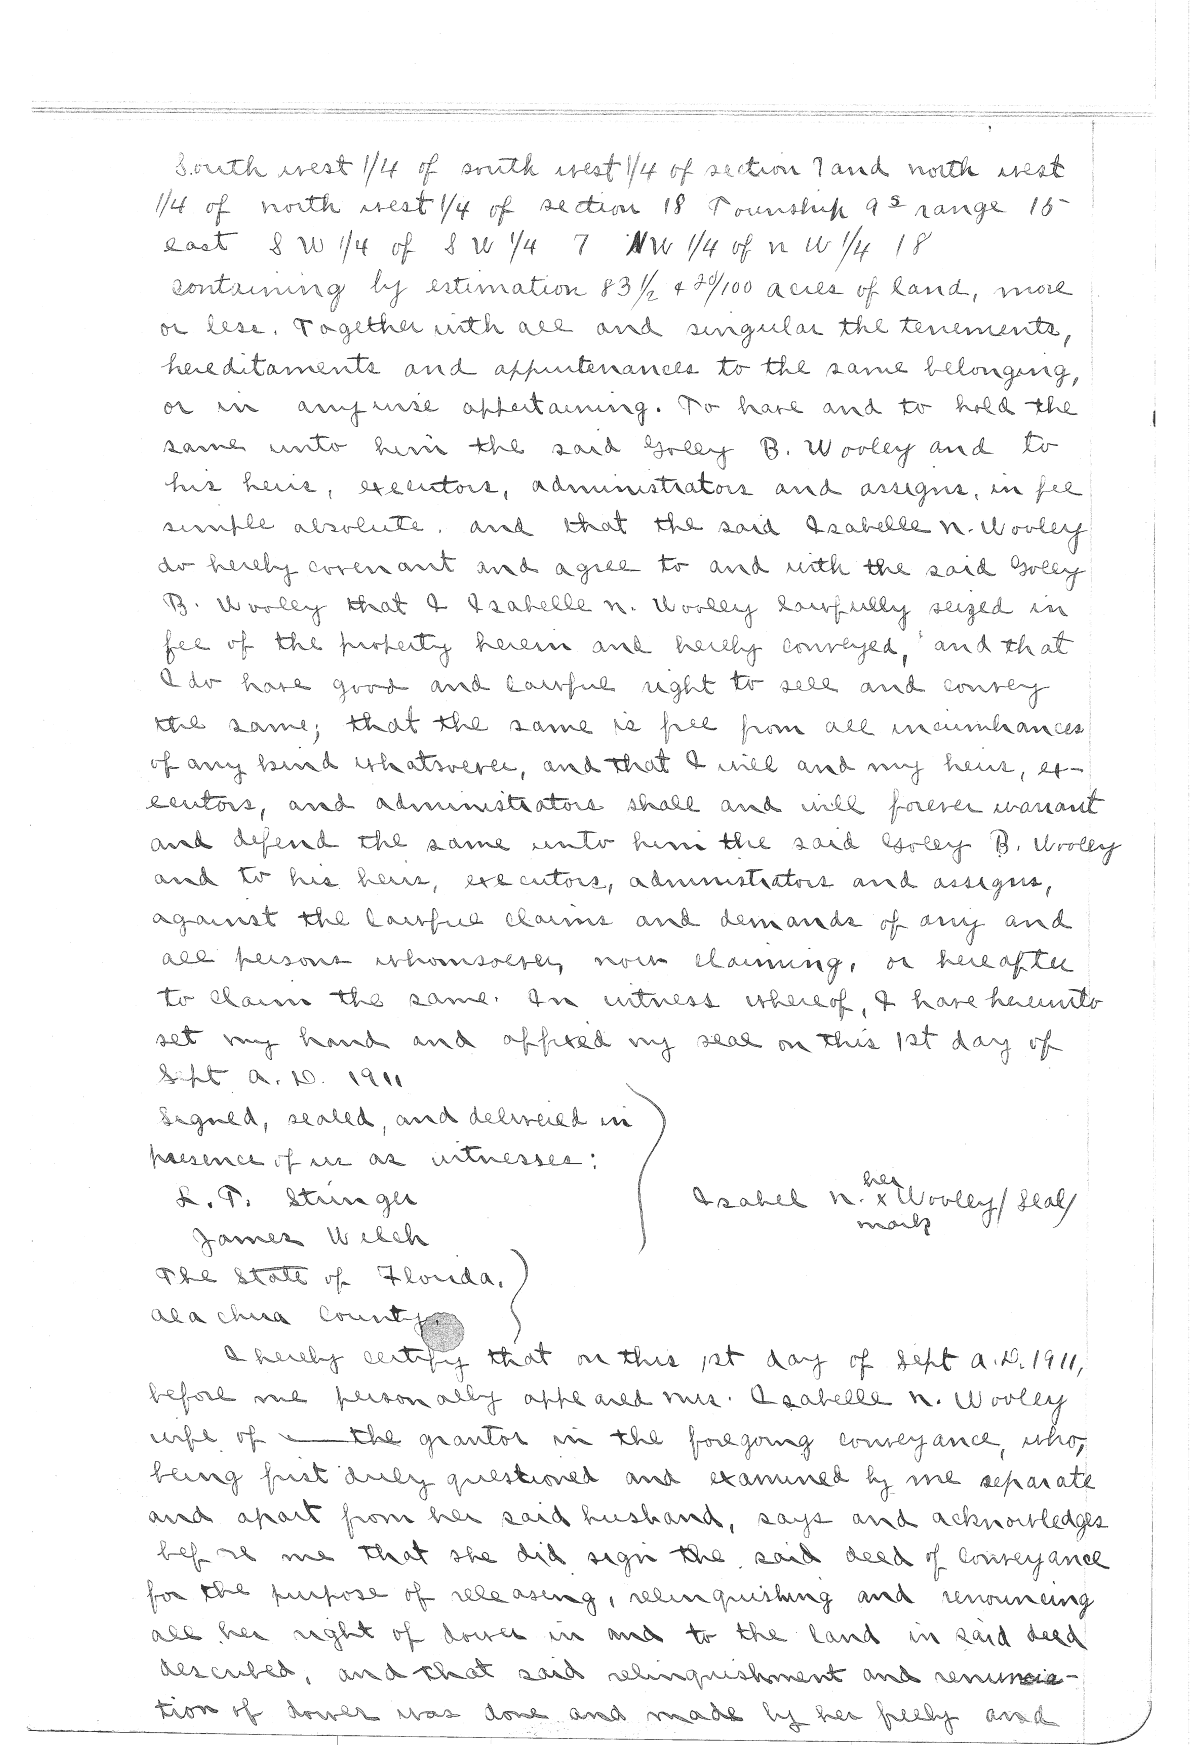 South west 1/4 of south west 1/4 of section 7 and north west
1/4 of north west 1/4 of section 18 Township 9 s range 15
east S W 1/4 of S W 1/4 7 NW 1/4 of n W 1/4 18
containing by estimation 83 1/2 & 20/100 acres of land, more
or less. Together with all and singular the tenements,
hereditaments and appurtenances to the same belonging,
or in anywise appertaining. To have and to hold the
same unto him the said Goley B. Wooley and to
his heirs, executors, administrators and assigns, in fee
simple absolute. and that the said Isabelle n. Wooley
do hereby covenant and agree to and with the said Goley
B. Wooley that I Isabelle n. Wooley lawfully seized in
fee of the property herein and hereby conveyed, and that
I do have good and lawful right to sell and convey
the same; that the same is free from all incumbances
of any kind whatsoever, and that I will and my heirs, ex-
ecutors, and administrators shall and will forever warrant
and defend the same unto him the said Goley B. Wooley
and to his heirs, executors, administrators and assigns,
against the lawful claims and demands of any and
all persons whomsoever, now claiming, or hereafter
to claim the same. In witness whereof, I have hereunto
set my hand and affixed my seal on this 1st day of
Sept A. D. 1911
Signed, sealed, and delivered in
presence of us as witnesses:
L. T. Stringer
her
Isabel n. x Wooley /Seal/
mark
James Welch
The State of Florida,
Alachua County.
I hereby certify that on this 1st day of Sept A.D. 1911,
before me personally appeared mrs. Isabelle n. Wooley
wife of — the grantor in the foregoing conveyance, who,
being first duly questioned and examined by me separate
and apart from her said husband, says and acknowledges
before me that she did sign the said deed of conveyance
for the purpose of releasing, relinquishing and renouncing
all her right of dower in and to the land in said deed
described, and that said relinquishment and renuncia-
tion of dower was done and made by her freely and